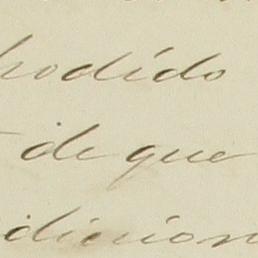 podido
de que
dicion